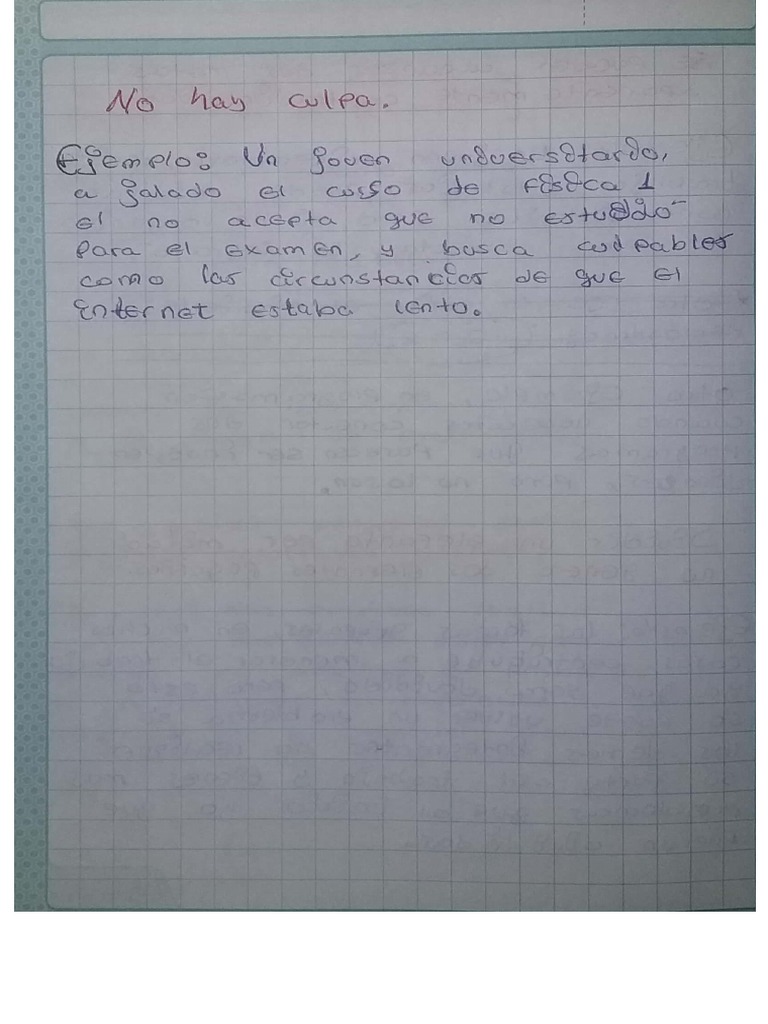 No hay culpa.
Ejemplo: Un joven universitario,
a jalado el curso de física 1
el no acepta que no estudio
para el examen, y busca culpables
como las circunstancias de que el
internet estaba lento.